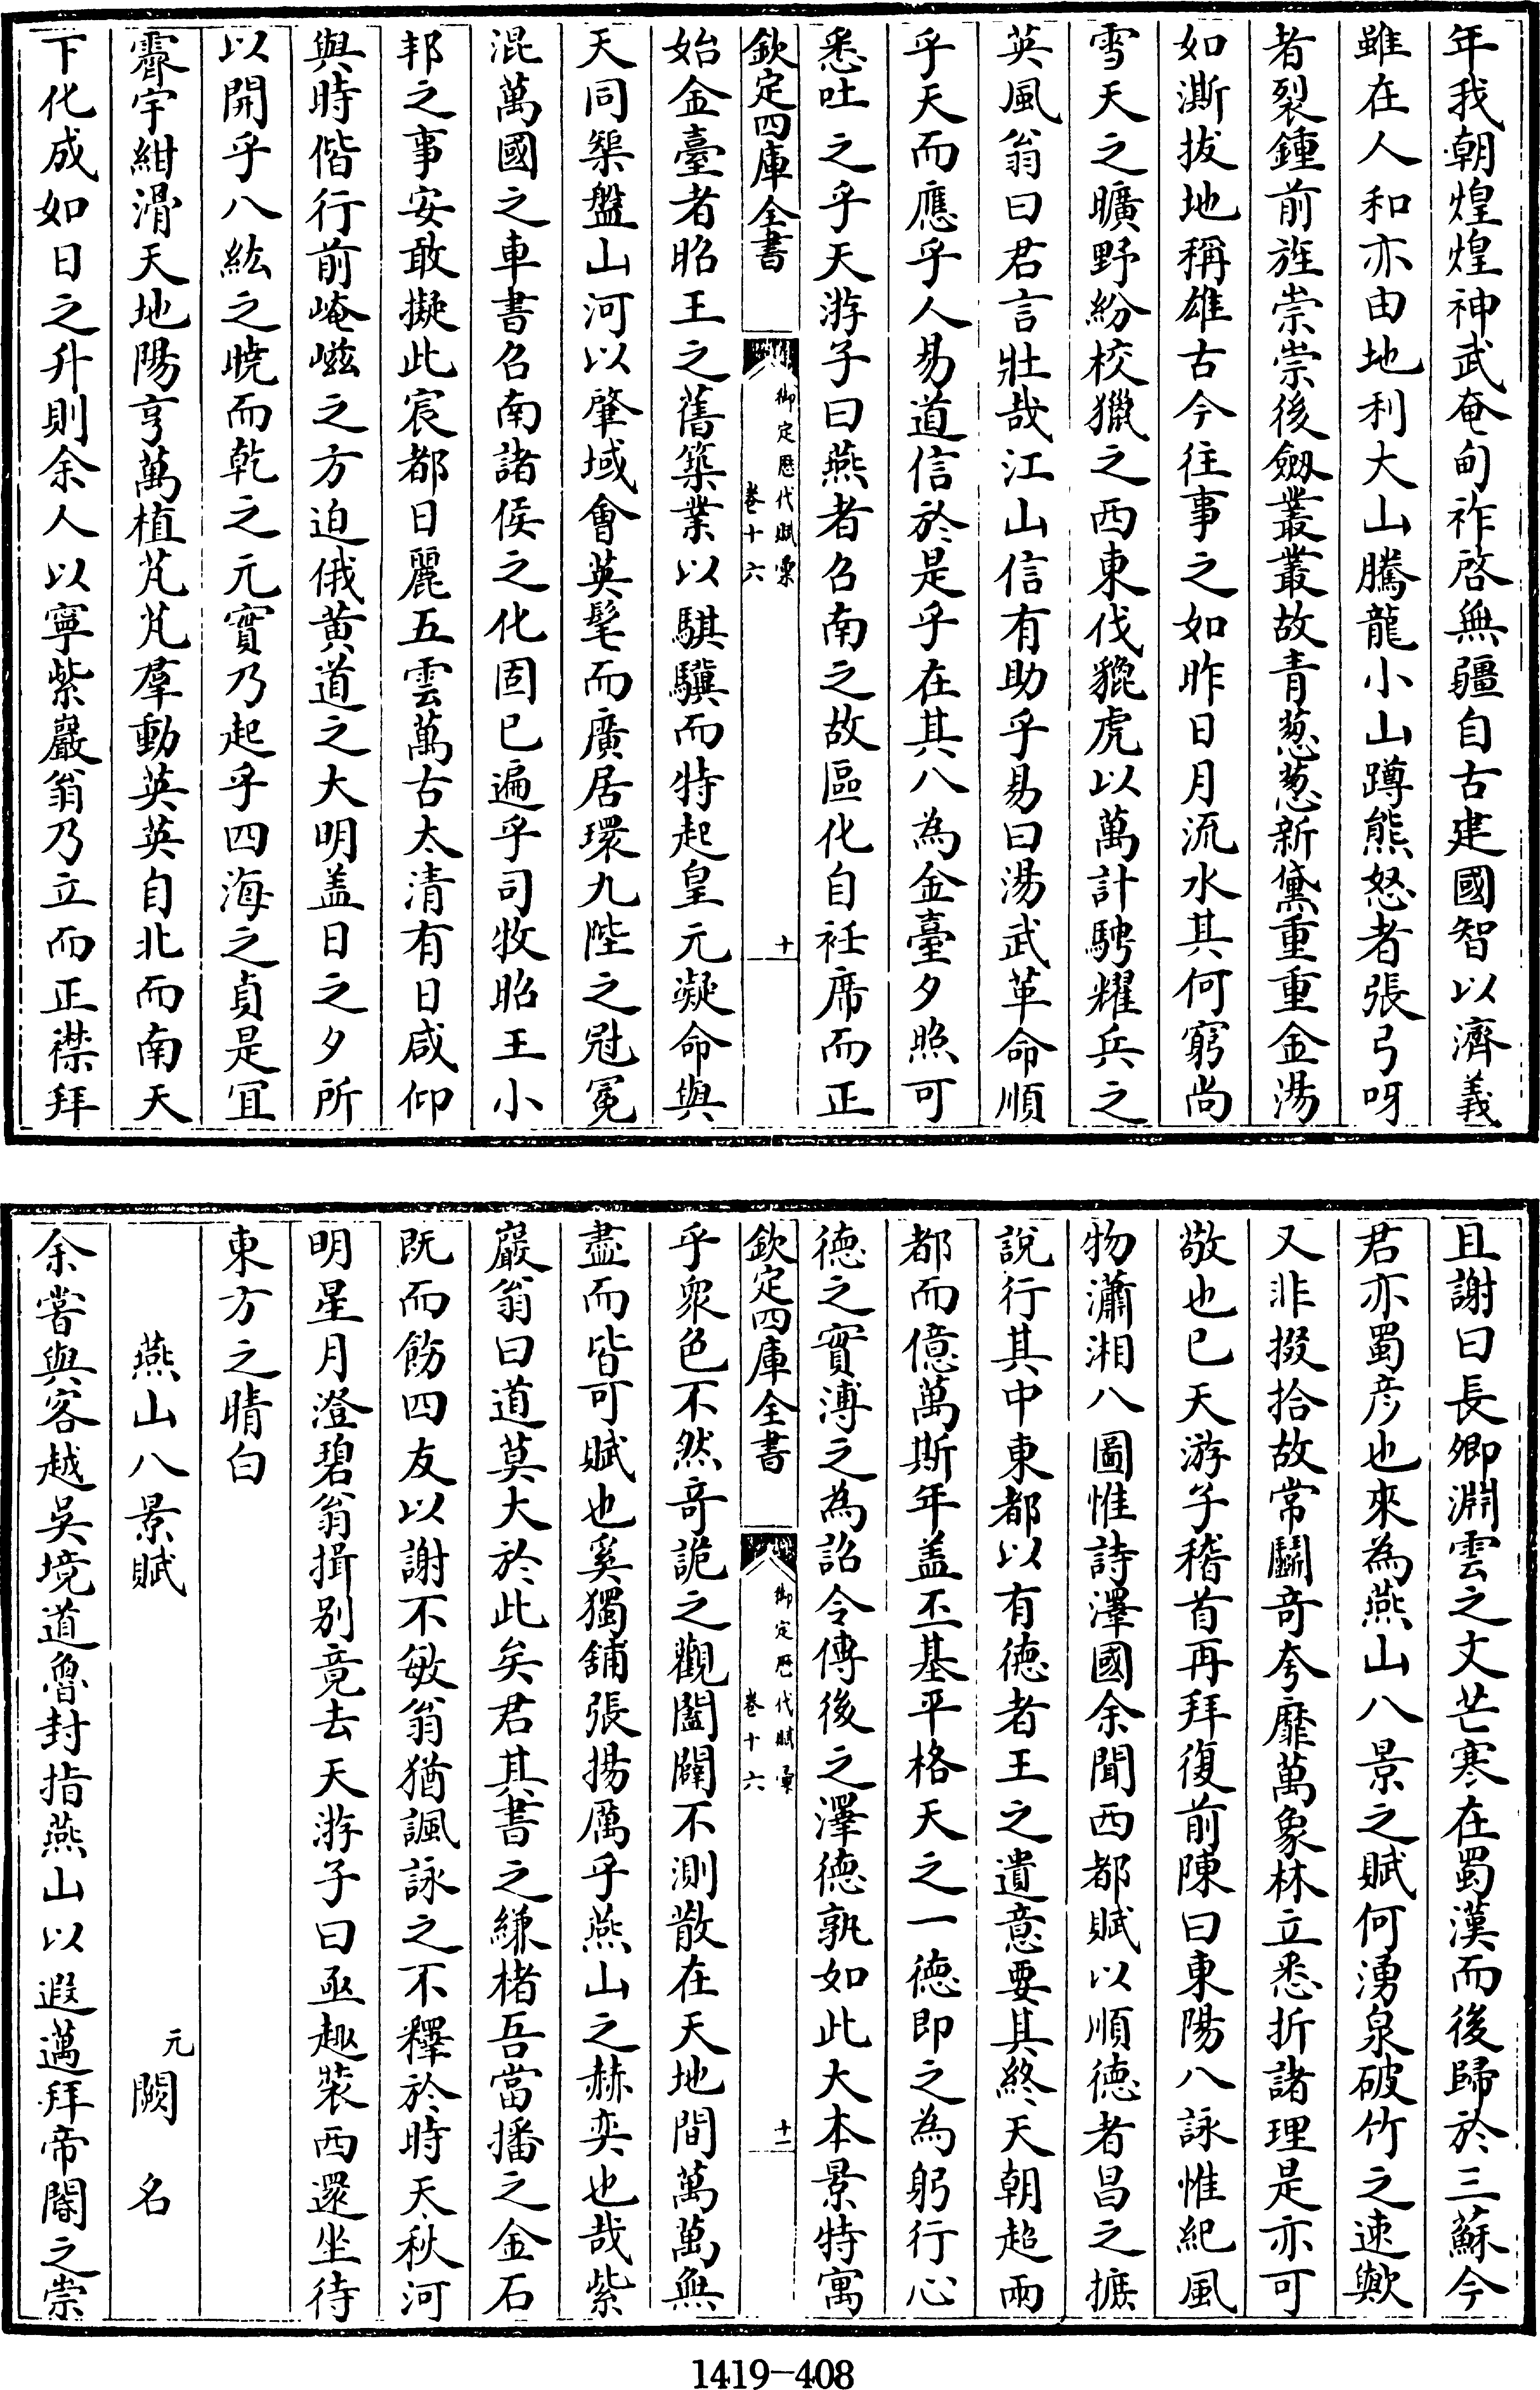 年我朝煌煌神武奄甸祚啓無疆自古建國智以濟義
雖在人和亦由地利大山騰龍小山蹲熊怒者張弓呀
者裂鍾前旌崇崇後劔叢叢故青葱葱新黛重重金湯
如澌拔地稱雄古今往事之如昨日月流水其何窮尚
雪天之曠野紛校獵之西東伐貔虎以萬計騁耀兵之
英風翁曰君言壯哉江山信有助乎易曰湯武革命順
乎天而應乎人易道信於是乎在其八為金臺夕照可
悉吐之乎天游子曰燕者召南之故區化自衽席而正
欽定四庫全書
御定歷代賦彙
卷十六
十
始金臺者昭王之舊築業以騏驥而特起皇元凝命與
天同槃盤山河以肇域會英髦而廣居環九陛之冠冕
混萬國之車書召南諸侯之化固已遍乎司牧昭王小
邦之事安敢擬此宸都日麗五雲萬古太清有日咸仰
與時偕行前崦嵫之方迫俄黄道之大明盖日之夕所
以開乎八紘之曉而乾之元實乃起乎四海之貞是宜
霽宇紺滑天地陽亨萬植芃芃羣動英英自北而南天
下化成如日之升則余人以寧紫巖翁乃立而正襟拜
且謝曰長卿淵雲之文芒寒在蜀漢而後歸於三蘇今
君亦蜀彦也來為燕山八景之賦何湧泉破竹之速歟
又非掇拾故常鬭竒夸靡萬象林立悉折諸理是亦可
敬也已天游子稽首再拜復前陳曰東陽八詠惟紀風
物瀟湘八圖惟詩澤國余聞西都賦以順德者昌之摭
說行其中東都以有德者王之遺意要其終天朝超兩
都而億萬斯年盖丕基平格天之一德即之為躬行心
德之實溥之為詔令傳後之澤德孰如此大本景特寓
欽定四庫全書
御定歷代賦彙
卷十六
十一
乎衆色不然竒詭之觀闔闢不測散在天地間萬萬無
盡而皆可賦也奚獨舖張揚厲乎燕山之赫奕也哉紫
巖翁曰道莫大於此矣君其書之縑楮吾當播之金石
既而飭四友以謝不敏翁猶諷詠之不釋於時天秋河
明星月澄碧翁揖别竟去天游子曰亟趣裝西還坐待
東方之晴白
燕山八景賦
元闕名
余嘗與客越吳境道魯封指燕山以遐邁拜帝閽之崇
1419-408